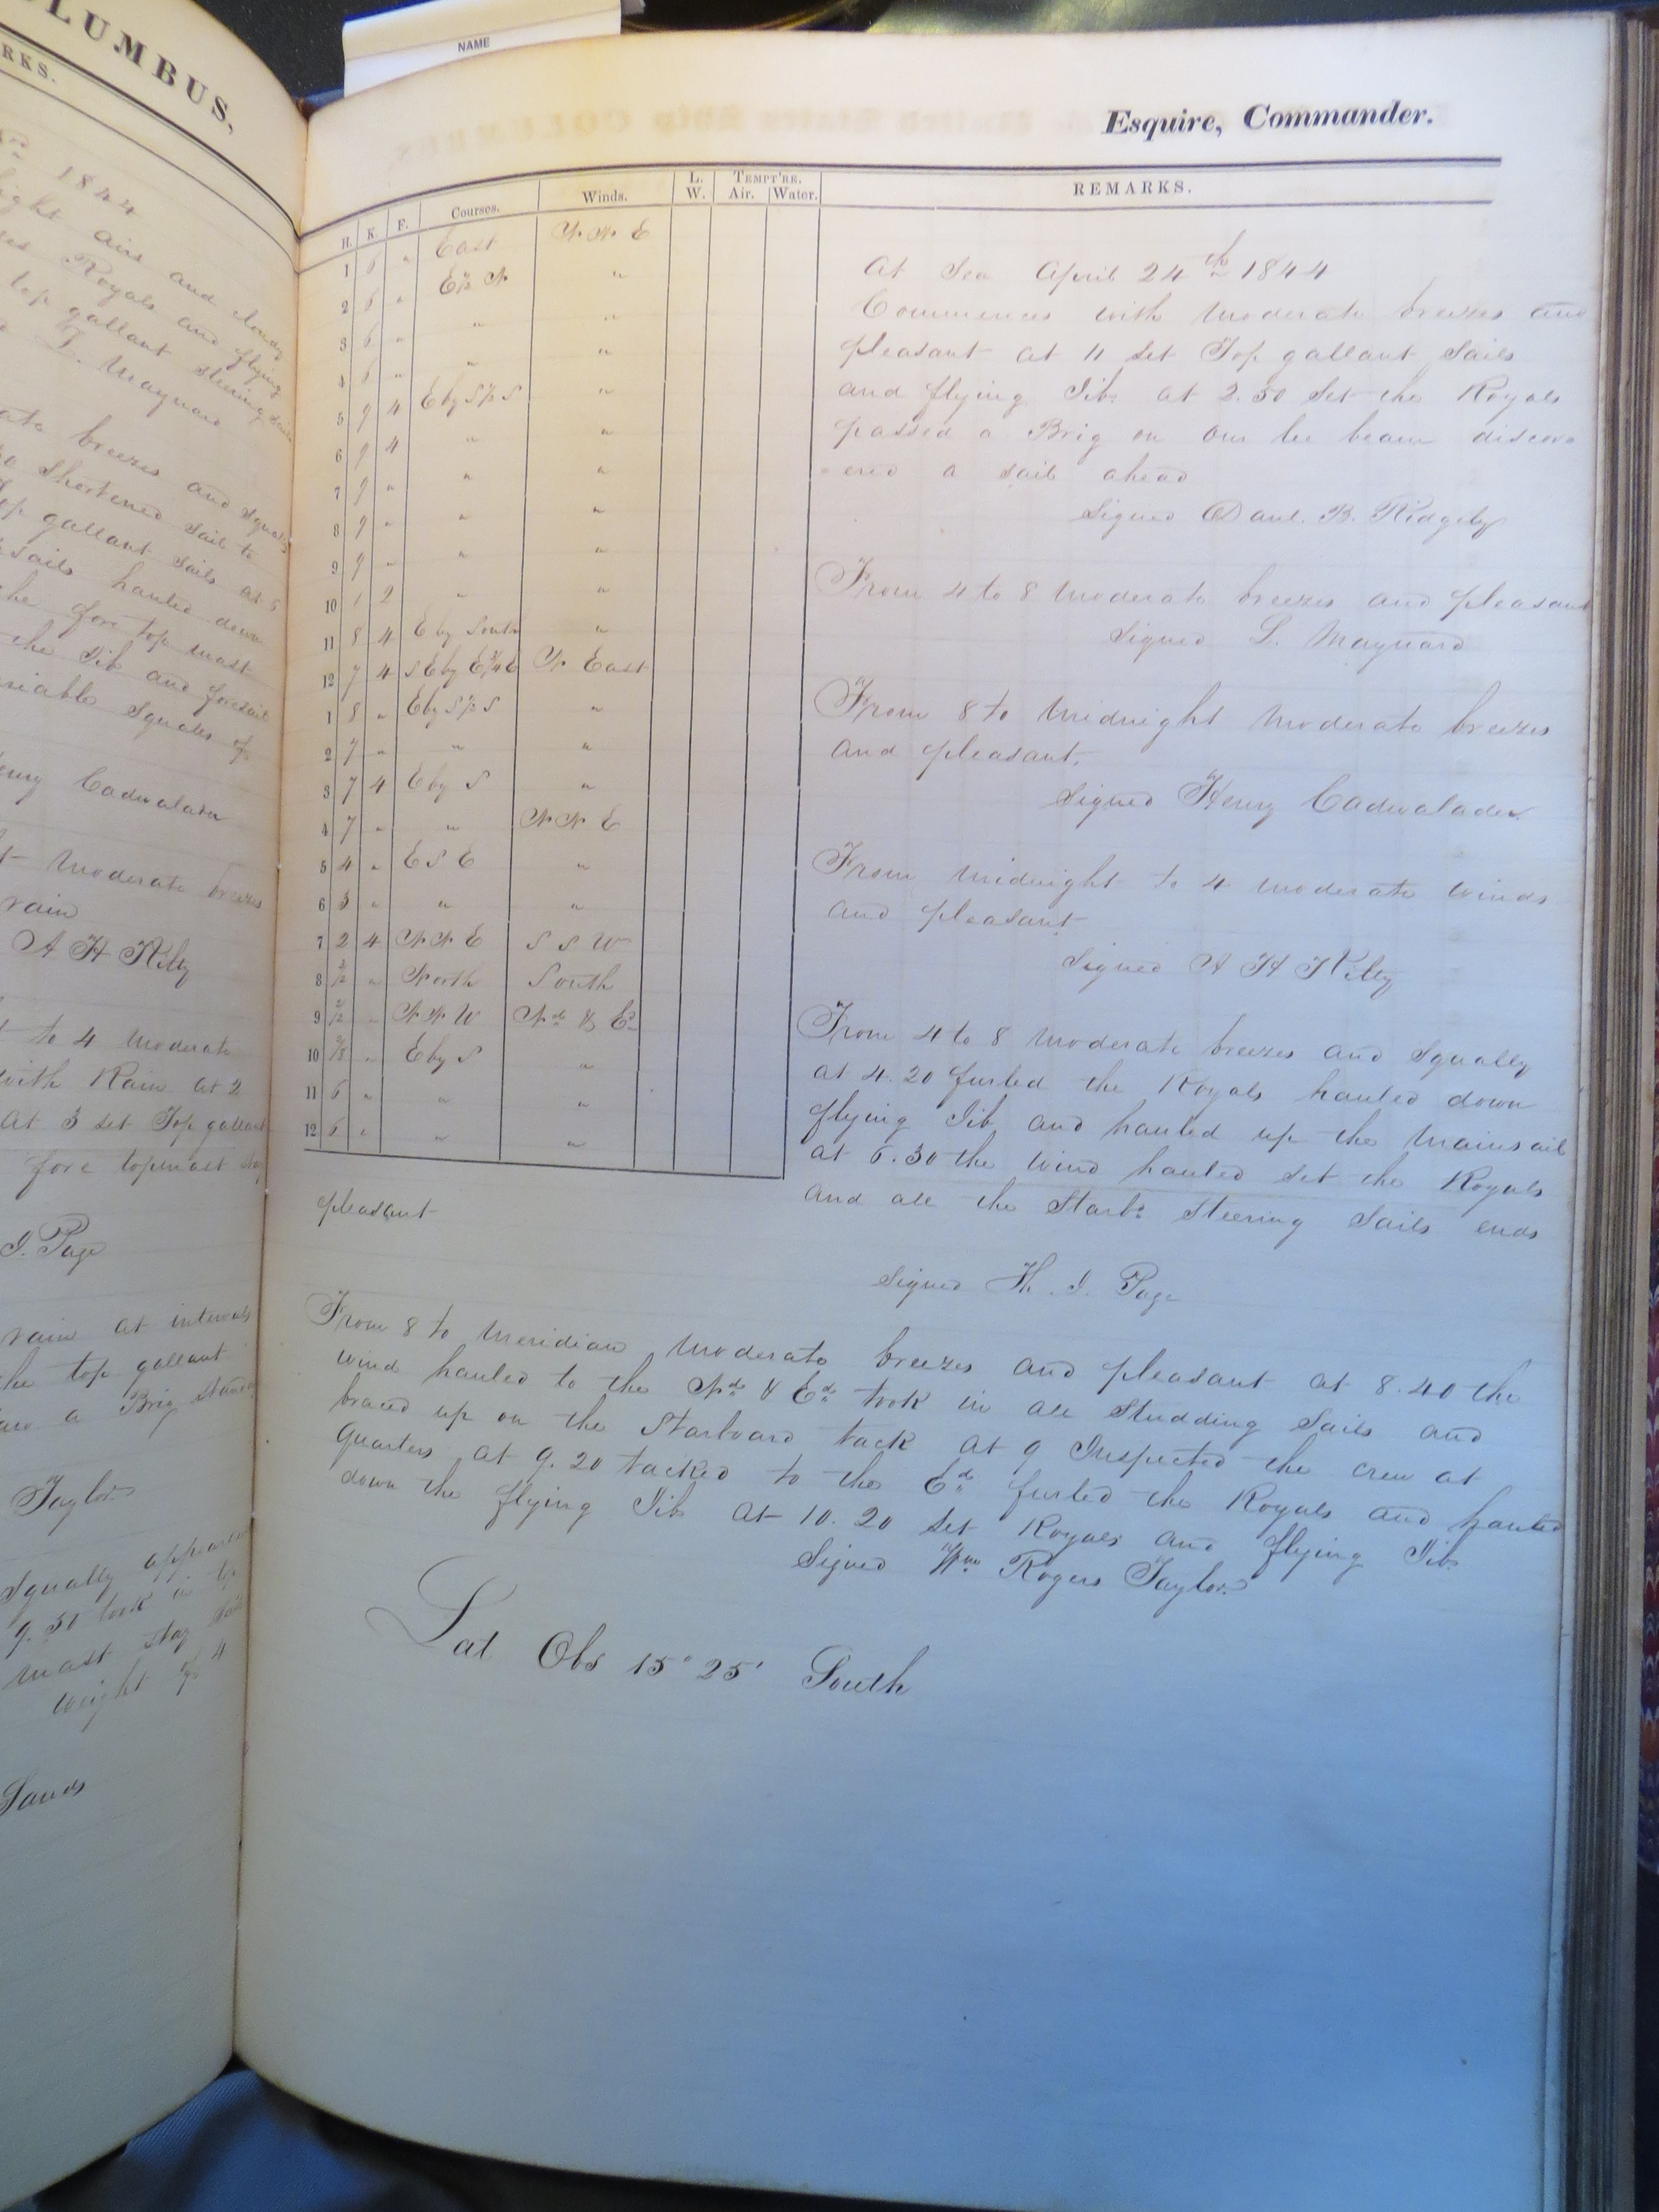 OLUMBUS,
RKS.
1844
light airs and cloudy
Royals and flying
top gallant steering sails
L. Maynard
breezes and squally
Shortened sail to
gallant sails at 5
sails hauled down
the fore top mast
the Jib and foresail
variable squalls of
Henry Cadwalader
moderate breezes
rain
A H Kilty
to 4 moderate
with Rain at 2
at 3 set Top gallant
fore topmast
J. Page
rain at intervals
the top gallant
saw a Brig
Taylor
squally appearance
9.30 took in
mast stay
weight of 4
Sands
NAME
Esquire, Commander.
H. K. F. Courses. Winds. L. W. TEMPT'RE. Air. Water. REMARKS.
1 6 " East N N E
2 6 " E ½ N "
3 6 " " "
4 6 " " "
5 9 4 E by S ½ S "
6 9 4 " "
7 9 " " "
8 9 " " "
9 9 " " "
10 2 " "
11 8 4 E by South "
12 7 4 S E by E ¾ E N East
1 8 " E by S ½ S "
2 7 " " "
3 7 4 E by S "
4 7 " " N N E
5 4 " E S E "
6 3 " " "
7 2 4 N N E S S W
8 2/12 " North South
9 2/12 " N N W Nd & Ed
10 " E by S "
11 6 " " "
12 6 " " "
At Sea April 24th 1844
Commences with moderate breezes and
pleasant at 11 set Top gallant sails
and flying Jib. at 2.30 set the Royals
passed a Brig on our lee beam discov=
=ered a sail ahead
Signed Danl. B. Ridgely
From 4 to 8 moderate breezes and pleasant
Signed L. Maynard
From 8 to midnight moderate breezes
and pleasant.
Signed Henry Cadwalader
From midnight to 4 moderate winds
and pleasant
Signed A H Kilty
From 4 to 8 moderate breezes and squally
at 4.20 furled the Royals hauled down
flying Jib and hauled up the mainsail
at 6.30 the wind hauled set the Royals
and all the Starbd Steering Sails ends
pleasant
Signed Th. J. Page
From 8 to Meridian moderate breezes and pleasant at 8.40 the
wind hauled to the Nd & Ed took in all studding sails and
braced up on the Starboard tack at 9 Inspected the crew at
Quarters at 9.20 tacked to the Ed furled the Royals and hauled
down the flying Jib at 10.20 set Royals and flying Jib.
Signed Wm Rogers Taylor
Lat Obs 15° 25' South